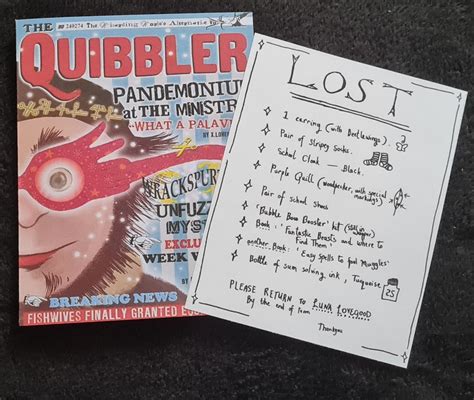 THE
QUIBBLER
PANDEMONIUM
at THE MINISTR
"WHAT A PALAV
BY X.LOVE
WRACKSPURT
UNFUZZ
MYS
EXCLU
WEEK W
BY
BREAKING NEWS
FISHWIVES FINALLY GRANTED E
LOST
1 earring (with Beetlewings).
Pair of Stripey Socks.
School Cloak — Black.
Purple Quill (woodpecker, with special markings)
Pair of school shoes
'Bubble Bow Booster' kit
Book: 'Fantastic Beasts and where to
Find Them'
another Book: 'Easy Spells to fool Muggles'
Bottle of sum solving ink, Turquoise
25
PLEASE RETURN to LUNA LOVEGOOD
By the end of term
Thankyou